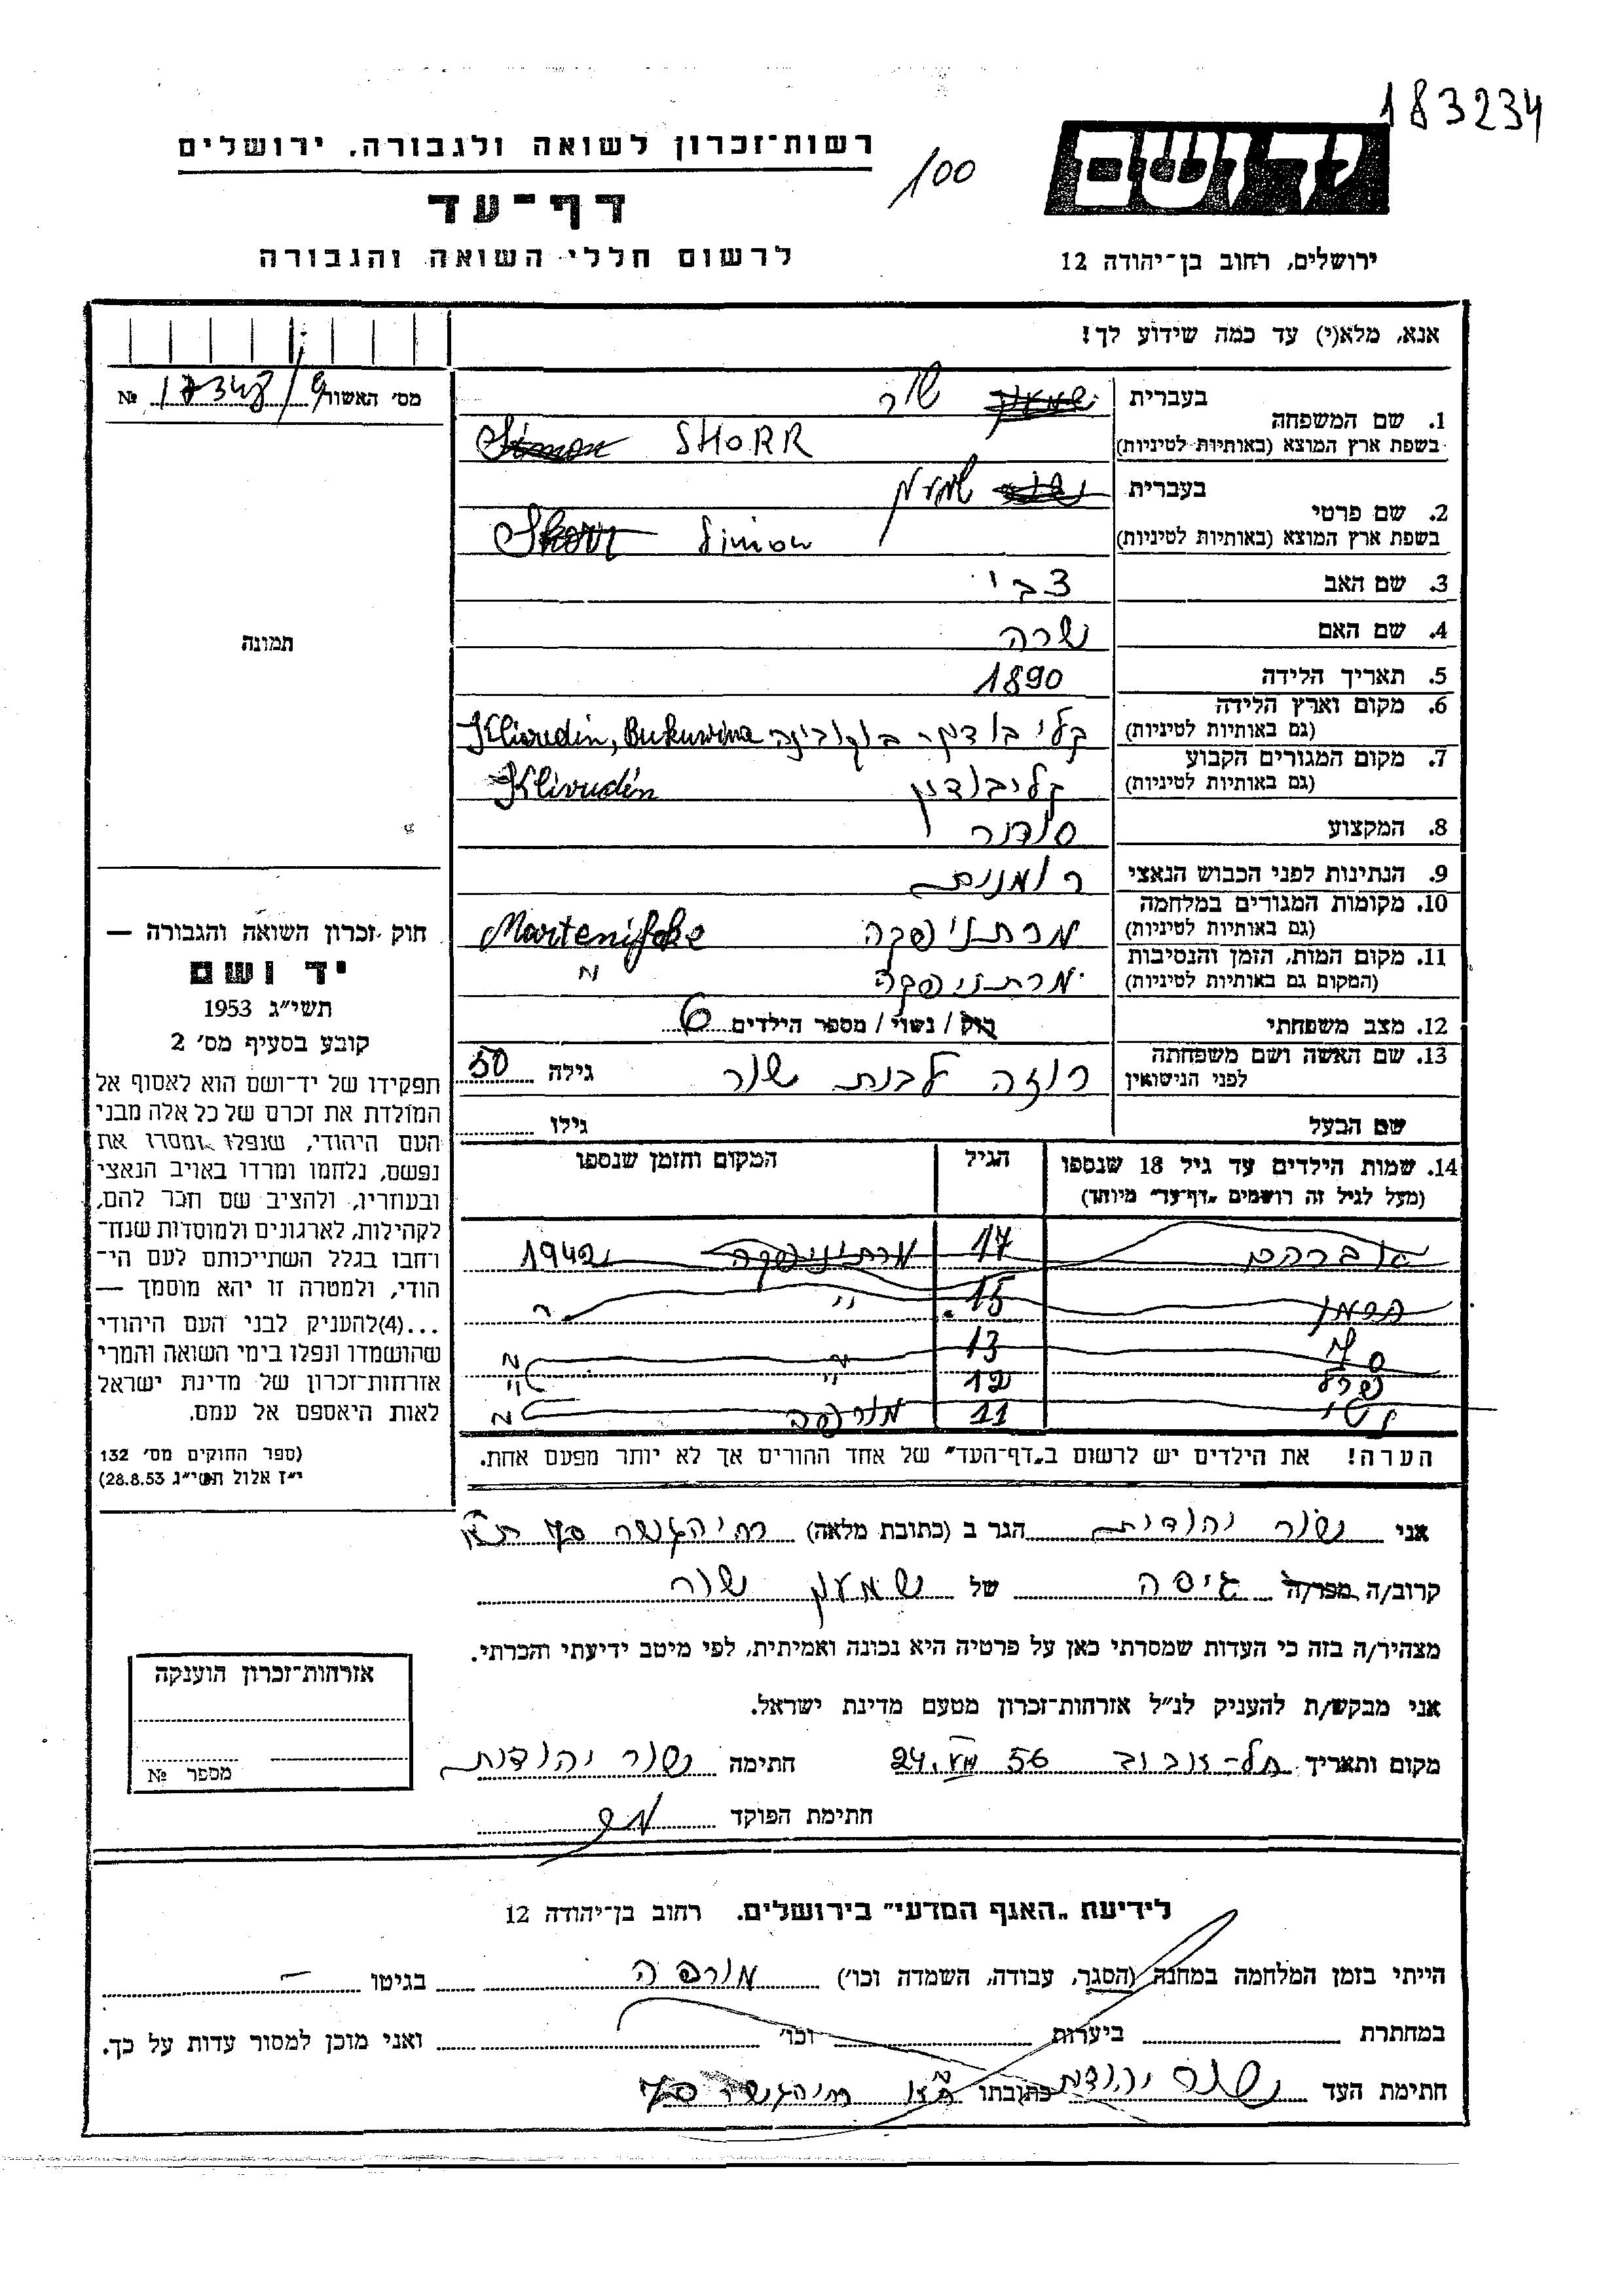 183234
רשות־זכרון לשואה ולגבורה, ירושלים
100
יד ושם
דף־עד
לרשום חללי השואה והגבורה
ירושלים, רחוב בן־יהודה 12
אנא, מלא(י) עד כמה שידוע לך!
מס' האשור 9/ №
1. שם המשפחה
בעברית שמעון שור
בשפת ארץ המוצא (באותיות לטיניות) Simon SHORR
2. שם פרטי
בעברית שור שמעון
בשפת ארץ המוצא (באותיות לטיניות) Shorr Simon
3. שם האב צבי
4. שם האם שרה
5. תאריך הלידה 1890
6. מקום וארץ הלידה
(גם באותיות לטיניות) בוקובינה Klivudin, Bukuwina
7. מקום המגורים הקבוע
(גם באותיות לטיניות) קליבודין Klivudin
8. המקצוע סוחר
9. הנתינות לפני הכבוש הנאצי רומנית
10. מקומות המגורים במלחמה
(גם באותיות לטיניות) מרתניפקה
11. מקום המות, הזמן והנסיבות
(המקום גם באותיות לטיניות) מרתניפקה "
12. מצב משפחתי רוק / נשוי / מספר הילדים 6
13. שם האשה ושם משפחתה
לפני הנישואין רוזה לבית שור גילה 50
שם הבעל גילו
14. שמות הילדים עד גיל 18 שנספו
(מעל לגיל זה רושמים „דף־עד" מיוחד)
הגיל
המקום והזמן שנספו
אברהם 17 מרתניפקה 1942
הרמן 15 " "
13 " "
12 " "
11 "
הערה! את הילדים יש לרשום ב„דף־העד" של אחד ההורים אך לא יותר מפעם אחת.
תמונה
חוק זכרון השואה והגבורה —
יד ושם
תשי"ג 1953
קובע בסעיף מס' 2
תפקידו של יד־ושם הוא לאסוף אל
המולדת את זכרם של כל אלה מבני
העם היהודי, שנפלו ומסרו את
נפשם, נלחמו ומרדו באויב הנאצי
ובעוזריו, ולהציב שם וזכר להם,
לקהילות, לארגונים ולמוסדות שנח־
רחבו בגלל השתייכותם לעם הי־
הודי, ולמטרה זו יהא מוסמך —
...(4)להעניק לבני העם היהודי
שהושמדו ונפלו בימי השואה והמרי
אזרחות־זכרון של מדינת ישראל
לאות היאספם אל עמם.
(ספר החוקים מס' 132
י"ז אלול תשי"ג 28.8.53)
אני שור יהודית הגר ב (כתובת מלאה)
קרוב/ה מכר/ה גיסה של שמעון שור
מצהיר/ה בזה כי העדות שמסרתי כאן על פרטיה היא נכונה ואמיתית, לפי מיטב ידיעתי והכרתי.
אני מבקש/ת להעניק לנ"ל אזרחות־זכרון מטעם מדינת ישראל.
מקום ותאריך תל־אביב 24.VII 56 חתימה שור יהודית
חתימת הפוקד
אזרחות־זכרון הוענקה
מספר №
לידיעת „האגף המדעי" בירושלים. רחוב בן־יהודה 12
הייתי בזמן המלחמה במחנה (הסגר, עבודה, השמדה וכו') מורפה בגיטו —
במחתרת ביערות וכו' ואני מוכן למסור עדות על כך.
חתימת העד שור יהודית כתובתו